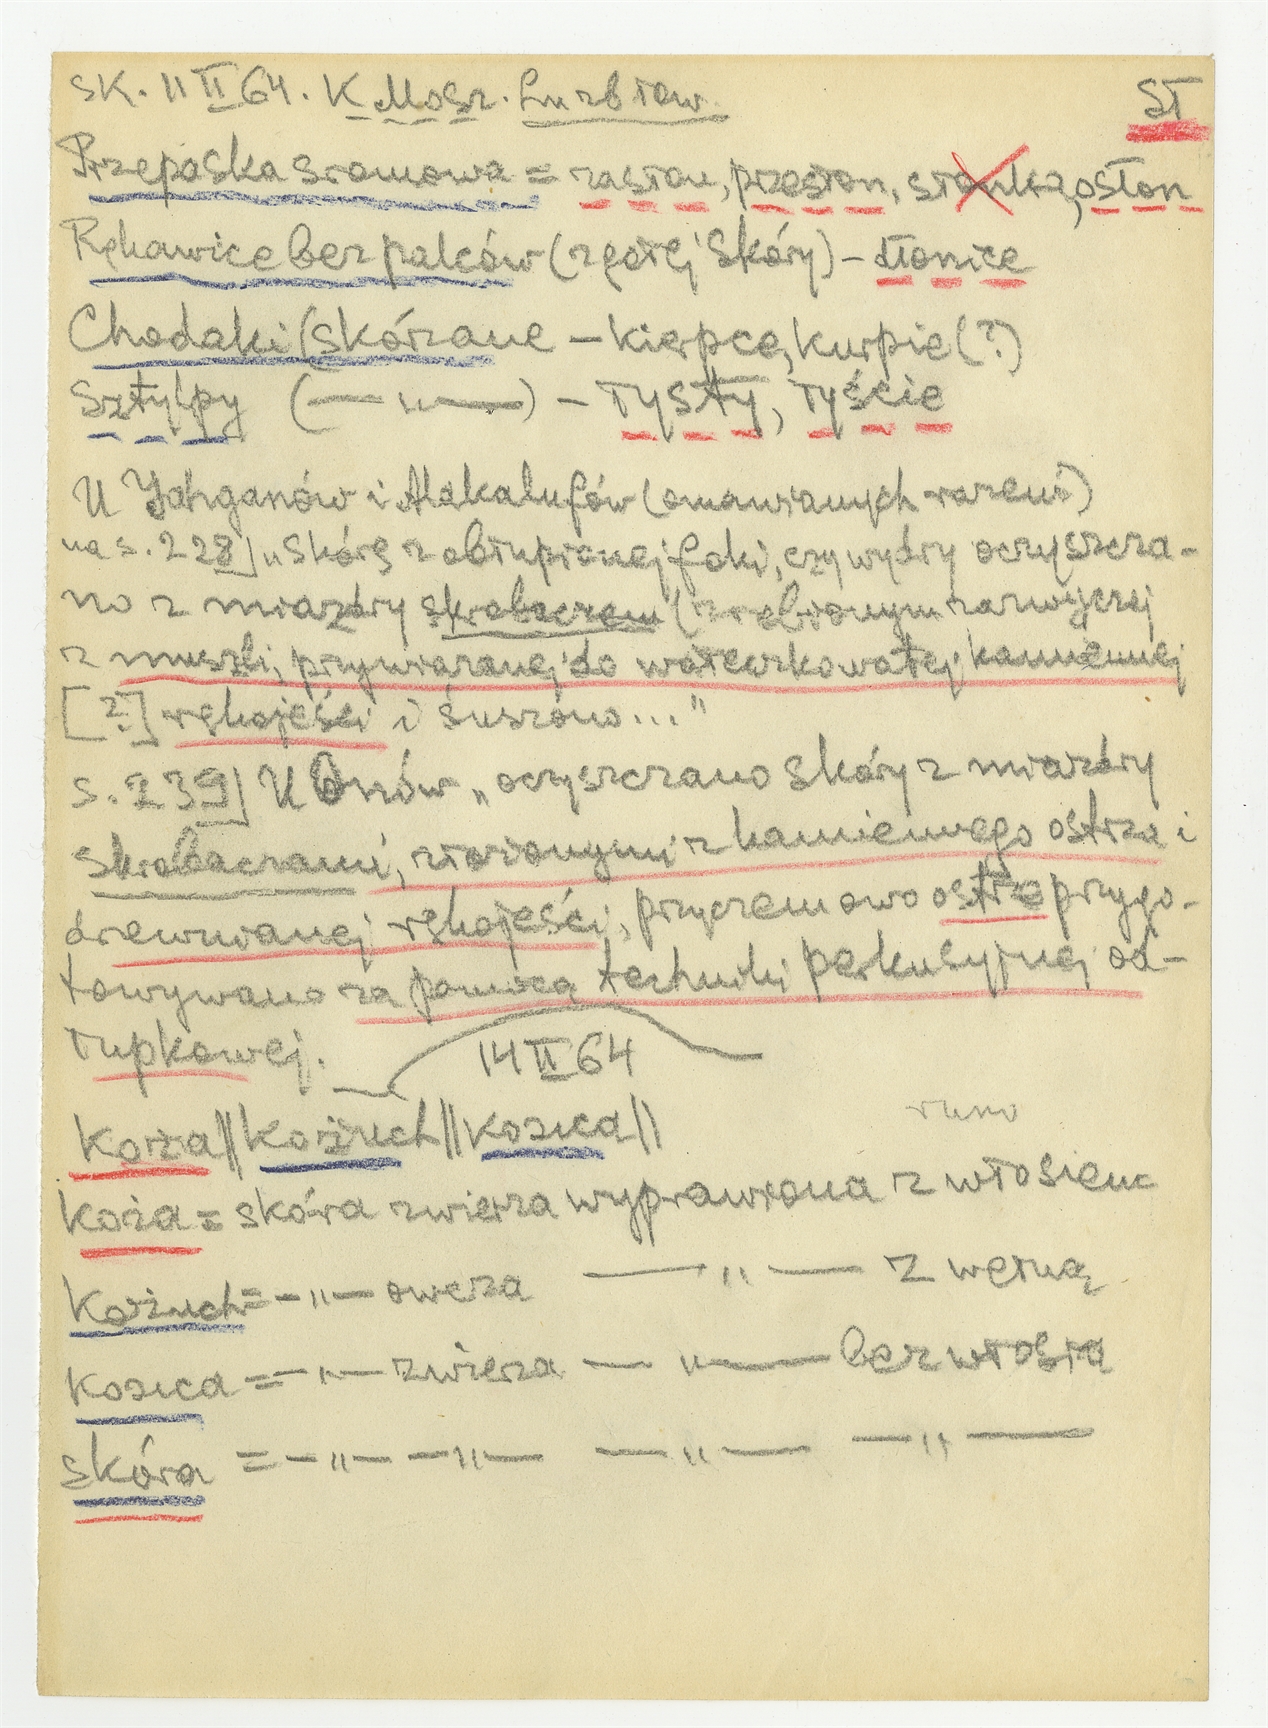 SK. 11 II 64. K. Mosz.
SŁ
Przepaska sromowa = zasłon, przesłon, słonka, osłon
Rękawice bez palców (z gołej skóry) – dłonice
Chodaki (skórzane – kierpce, kurpie (?)
Sztylpy (— „ —) – łysty, łyście
U Jahganów i Alakalufów (omawianych razem)
na s. 228] „skórę z obłupionej foki, czy wydry oczyszcza-
no z miazdry skrobaczem (zrobionym zazwyczej
z muszli, przywiązanej do wałeczkowatej kamiennej
[?] rękojeści i suszono..."
s. 239] U Onów „oczyszczano skóry z miazdry
skrobaczami, złożonymi z kamiennego ostrza i
drewnianej rękojeści, przyczem owo ostrze przygo-
towywano za pomocą techniki perkusyjnej od-
łupkowej.
14 II 64
Koża || Kożuch || Kosica ||
runo
Koża = skóra zwierza wyprawiona z włosiem
Kożuch = – „ – owcza — „ — z wełną
Kosica = – „ – zwierza — „ — bez włosia
skóra = – „ – – „ – — „ — — „ —